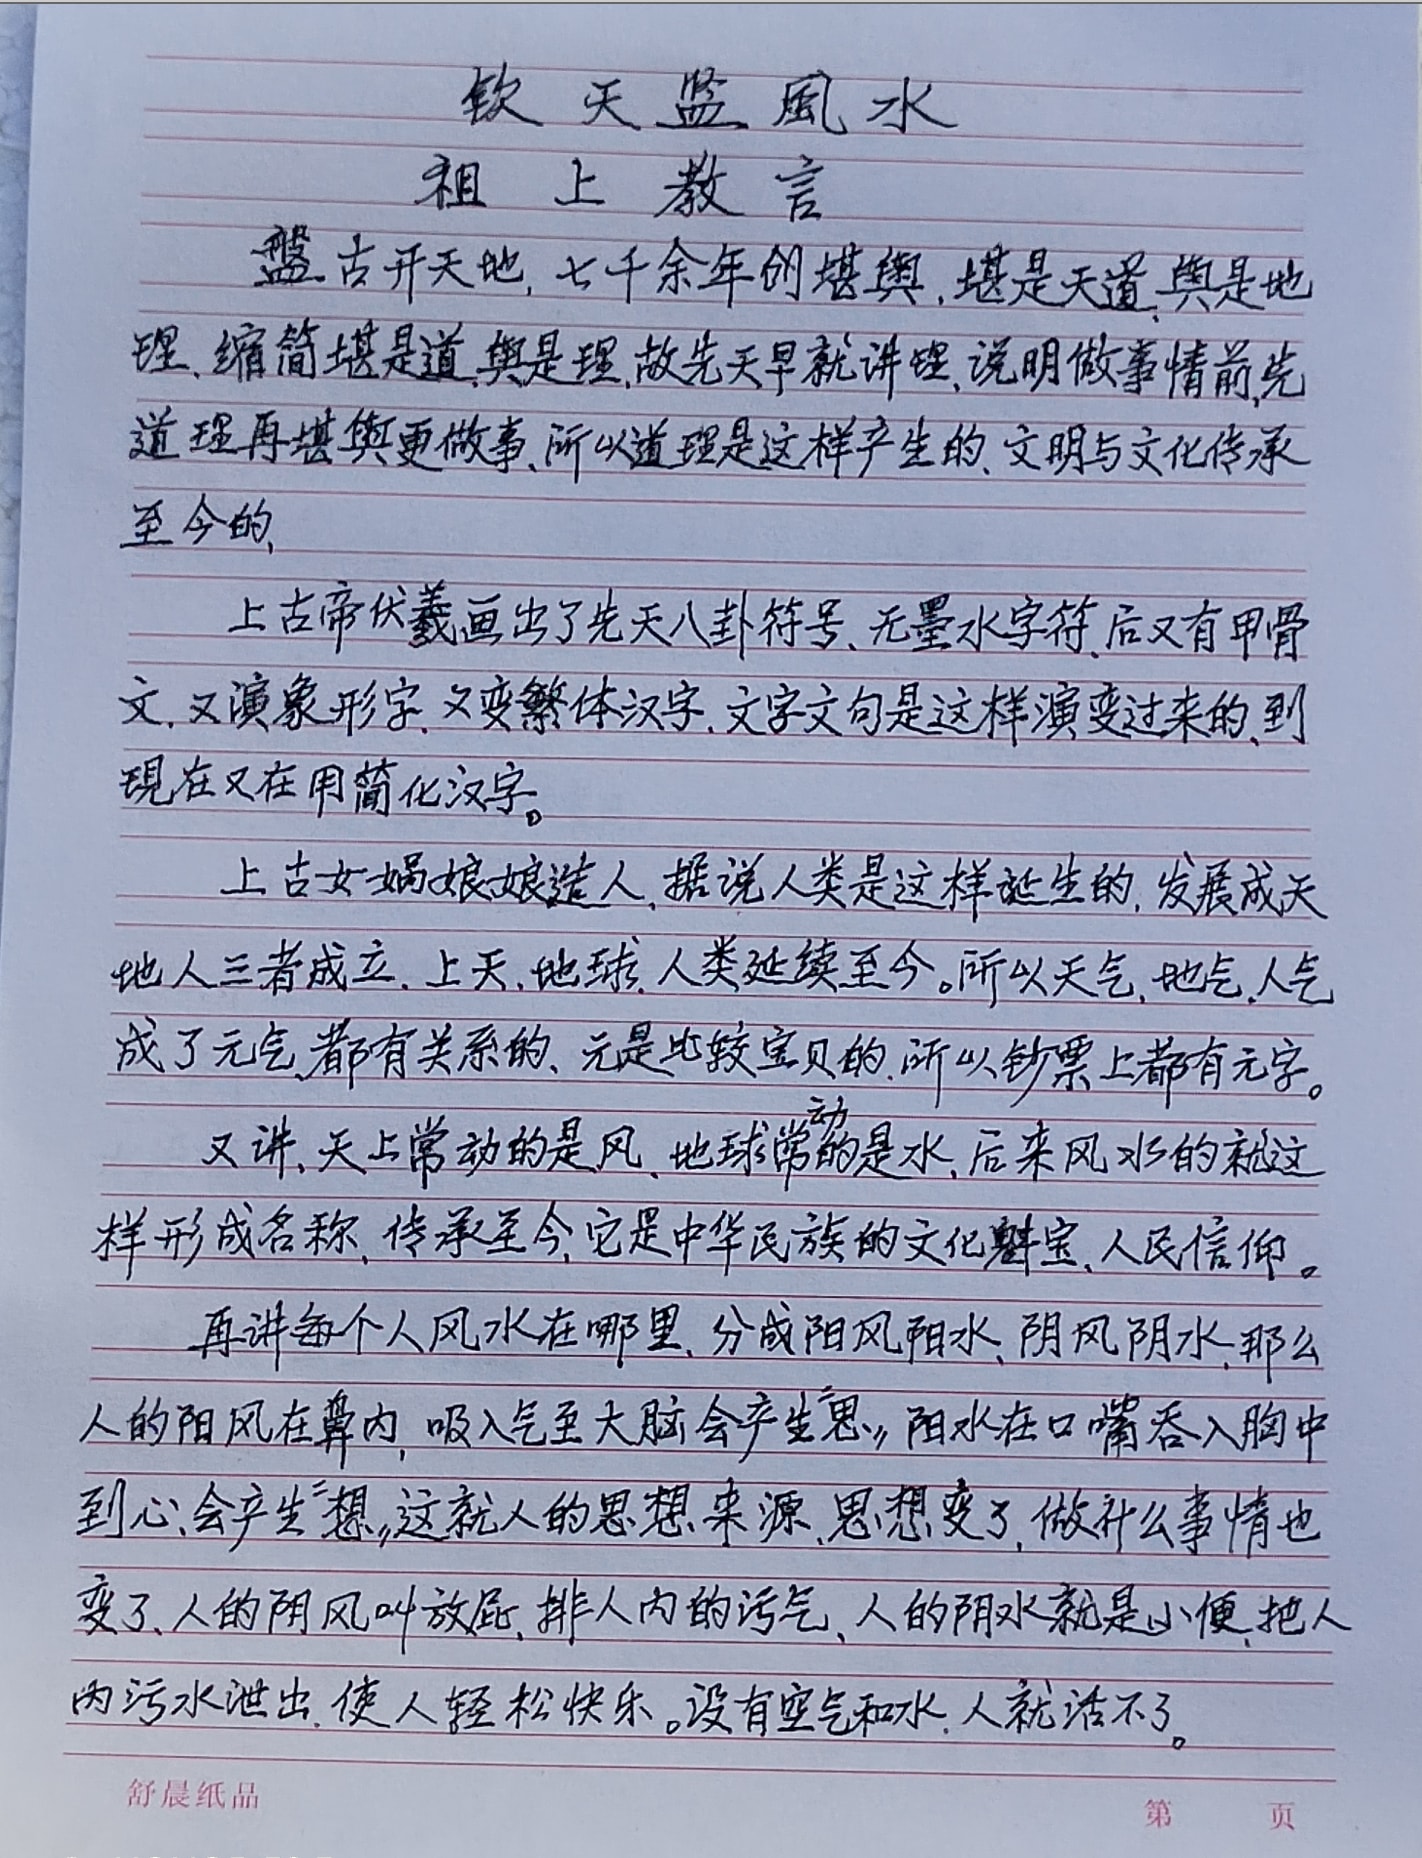 钦天监風水
祖上教言
盤古开天地，七千余年的堪舆，堪是天道、舆是地
理、缩简堪是道，舆是理，故先天早就讲理、说明做事情前，先
道理再堪舆更做事、所以道理是这样产生的、文明与文化传承
至今的，
上古帝伏羲画出了先天八卦符号、无墨水字符、后又有甲骨
文、又演象形字、又变繁体汉字、文字文句是这样演变过来的、到
現在又在用简化汉字。
上古女娲娘娘造人，据说人类是这样诞生的，发展成天
地人三者成立、上天、地球、人类延续至今。所以天气、地气、人气
成了元气、都有关系的、元是比较宝贝的、所以钞票上都有元字。
又讲、天上常动的是风、地球常动的是水、后来风水的就这
样形成名称，传承至今，它是中华民族的文化魁宝、人民信仰。
再讲每个人风水在哪里、分成阳风阳水、阴风阴水、那么
人的阳风在鼻内，吸入气至大脑会产生“思”，阳水在口嘴吞入胸中
到心、会产生“想”，这就人的思想来源、思想变了，做什么事情也
变了、人的阴风叫放屁、排人内的污气、人的阴水就是小便、把人
内污水泄出、使人轻松快乐。没有空气和水、人就活不了。
舒晨纸品
第 页